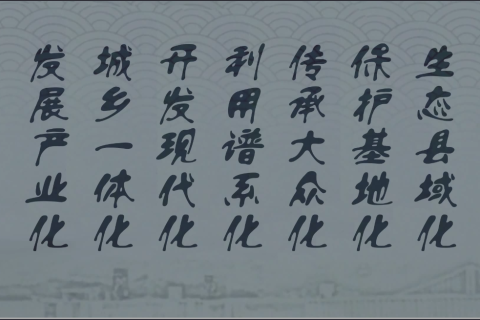 生态县域化
保护基地化
传承大众化
利用谱系化
开发现代化
城乡一体化
发展产业化